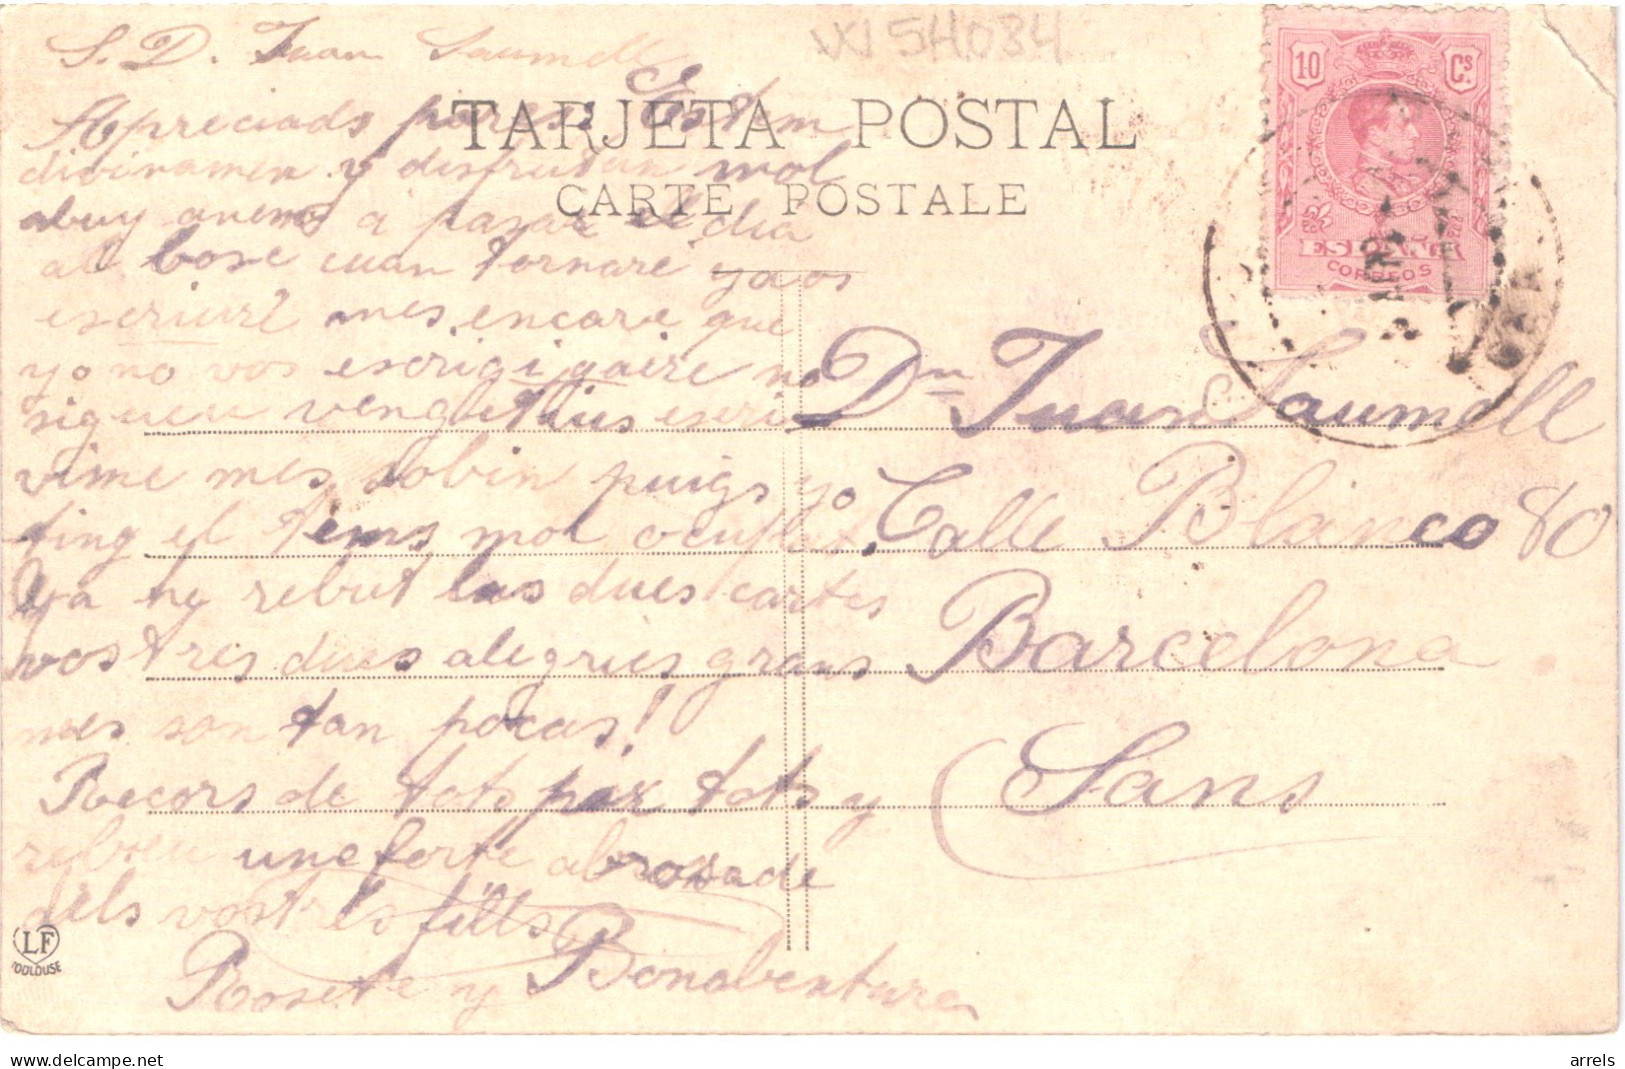 VV 54034
S. D. Juan Saumell
TARJETA POSTAL
CARTE POSTALE
10 Cs.
ESPAÑA
CORREOS
Apreciads pares: Estem
divinamen y disfrutan mol
abuy anem á pasar el dia
al bosc cuan tornare yaos
escriuré mes encare que
yo no vos escrigi gaire no
sigueu venguetius escri
vime mes sobin puigs yo
ting el tems mol ocupat.
Ya hy rebut las dues cartes
vostres dues alegries grans
mes son tan pocas!
Recors de tots par tots y
rebreu une forte abrosade
dels vostres fills
Rosete y Bonaventure
Dn Juan Saumell
Calle Blanco 80
Barcelona
Sans
LF
TOULOUSE
arrels
www.delcampe.net